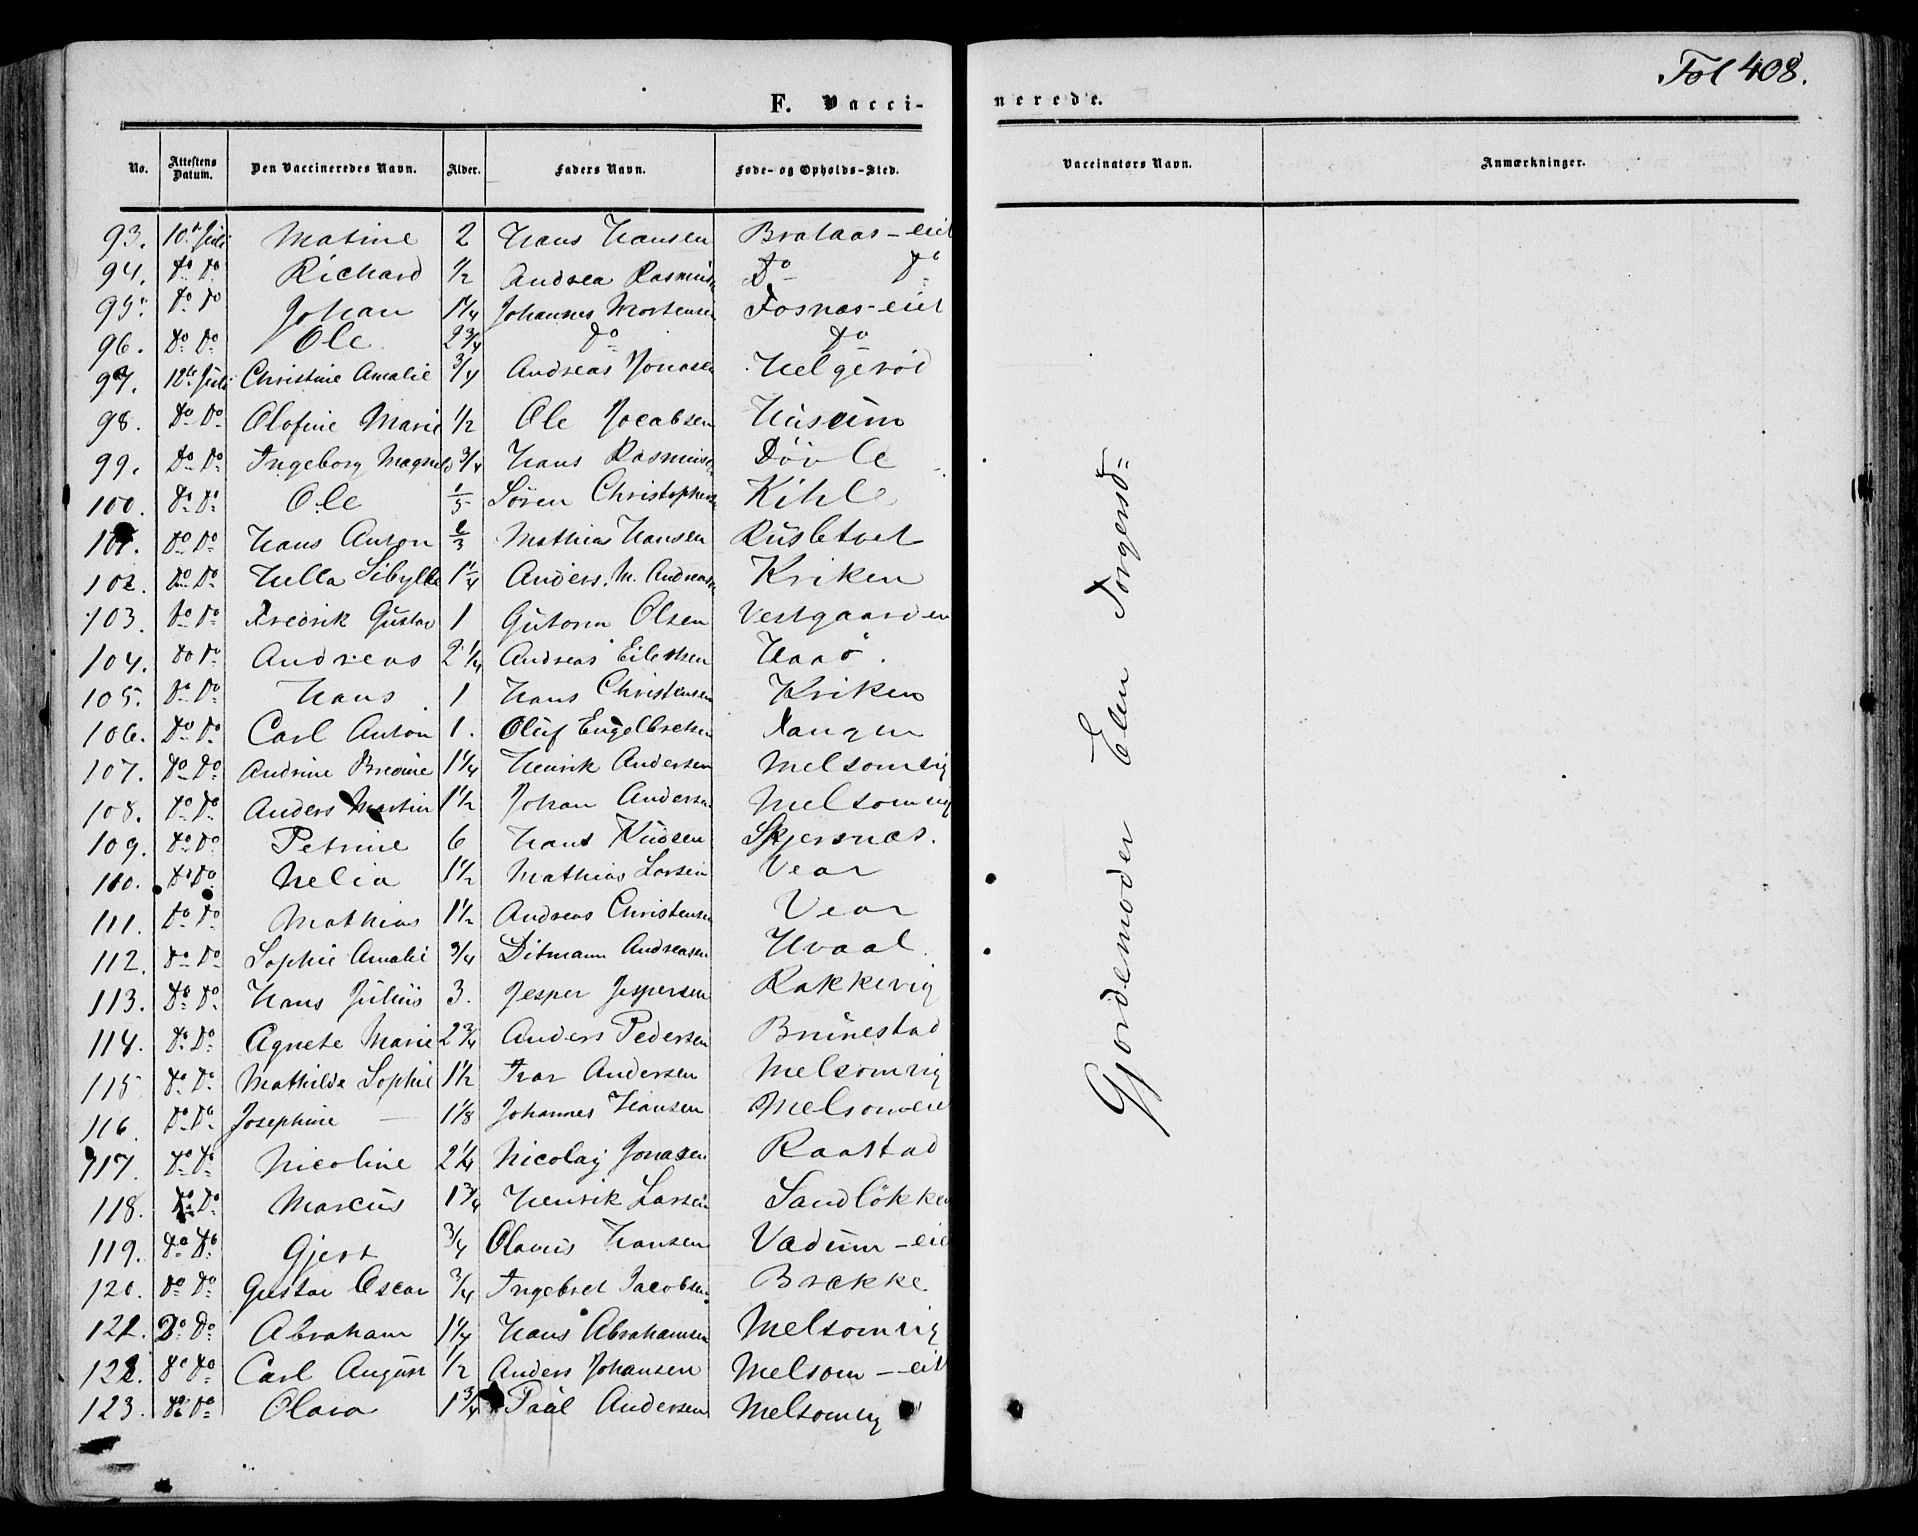 Fol 408.
F. Vacci-
nerede.
No. Attestens Datum. Den Vaccineredes Navn. Alder. Faders Navn. Føde- og Opholds-Sted. Vaccinators Navn. Anmærkninger.
93. 10de Juli Matine 2 Hans Hansen Brataas-eiet
94. Do Do Richard 1/2 Andrea Rasmus Do Do
95. Do Do Johan 1 1/4 Johannes Mortensen Fosnæs-eiet
96. Do Do Ole 2 3/4 Do Do
97. 12te Juli Christine Amalie 3/4 Andreas Jonasen Helgerød
98. Do Do Olofine Marie 1/2 Ole Jocabsen Husum
99. Do Do Ingeborg Magnild 3/4 Hans Rasmusen Døvle
100. Do Do Ole 1/5 Søren Christophers Kihle
101. Do Do Hans Anton 2/3 Mathias Hansen Rusletvet
102. Do Do Hella Sibylle 1 1/4 Anders. M. Andreasen Kriken
103. Do Do Fredrik Gustav 1 Gutorm Olsen Vestgaarden
104. Do Do Andreas 2 1/4 Andreas Eilertsen Haaö.
105. Do Do Hans 1 Hans Christensen Kriken
106. Do Do Carl Anton 1. Oluf Engelbretsen Tangen
107. Do Do Andrine Bredine 1 1/4 Henrik Andersen Melsomvig
108. Do Do Anders Martin 1 1/2 Johan Andersen Melsomvig
109. Do Do Petrine 6 Hans Knudsen Skjersnæs.
110. Do Do Nelia 1 1/2 Mathias Larsen Vear
111. Do Do Mathias 1 1/2 Andreas Christensen Vear
112. Do Do Sophie Amalie 3/4 Ditmann Andreasen Hvaal
113. Do Do Hans Julius 3. Jesper Jespersen Rakkevig
114. Do Do Agnete Marie 2 3/4 Anders Pedersen Brunestad
115 Do Do Mathilde Sophie 1 1/2 Ivar Andersen Melsomvig
116. Do Do Josephine — 1 1/8 Johannes Hansen Melsomeie
117. Do Do Nicoline 2 1/4 Nicolaj Jonasen Raastad
118. Do Do Marcus 1 3/4 Henrik Larsen Sandløkken
119. Do Do Gjert 3/4 Olaus Hansen Vadum-eie
120. Do Do Gustav Oscar 3/4 Ingebret Jacobsen Brække
121. Do Do Abraham 1 1/4 Hans Abrahamsen Melsomvig
122. Do Do Carl August 1/2 Anders Johansen Melsom-eiet
123. Do Do Olava 1 3/4 Paul Andersen Melsomvig
Gjordemoder Elen Torgersd=